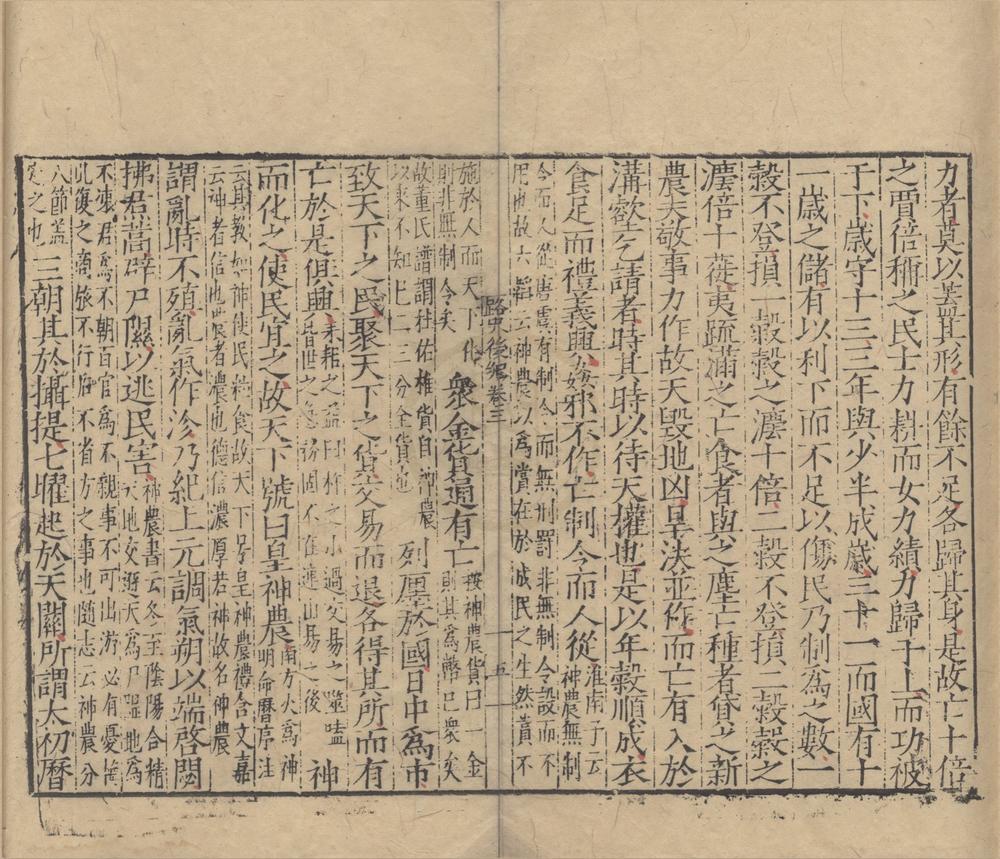 力者莫以葢其形有餘不足各歸其身是故亡十倍
之賈倍稱之民士力耕而女力績力歸于上而功被
于下歲守十三三年與少半成歲三十一而國有十
一歲之儲有以利下而不足以傷民乃制爲之數一
穀不登損一穀穀之灋十倍二穀不登損二穀穀之
灋倍十蓰夷疏滿之亡食者與之塵亡種者貸之新
農夫敬事力作故天毀地凶旱泆並作而亡有入於
溝壑乞請者時其時以待天權也是以年穀順成衣
食足而禮義興姦邪不作亡制令而人從
淮南子云神農無制
令而人從唐虞有制令而無刑罰非無制令設而不
用也故六韜云神農以爲賞在於成民之生然賞不
路史後編卷三 五
施於人而天下化
則非無制令矣
衆金貨通有亡
按神農貨曰一金
則其爲幣已衆矣
故董氏譜謂杜佑榷貨自神農
以來不知七二三分全貨也
列廛於國日中爲市
致天下之民聚天下之貨交易而退各得其所而有
亡於是俱興
耒耜之益日杵之小過交易之噬嗑
昔世之 固不在連山易之後
神
而化之使民宜之故天下號曰皇神農
南方火爲神
明命曆序注
云其教如神使民粒食故天下号皇神農禮含文嘉
云神者信也農者濃也德信濃厚若神故名神農
謂亂時不殖亂氣作沴乃紀上元調氣朔以端啓閉
拂焄蒿辟尸 以逃民害
神農書云冬至陰陽合精
天地交 天爲尸 地爲
不凍君爲不朝百官爲不親事不可出游必有憂悔
此復之商旅不行后不省方之事也隨志云神農分
八節葢
從之也
三朝其於攝提七曜起於天關所謂太初曆